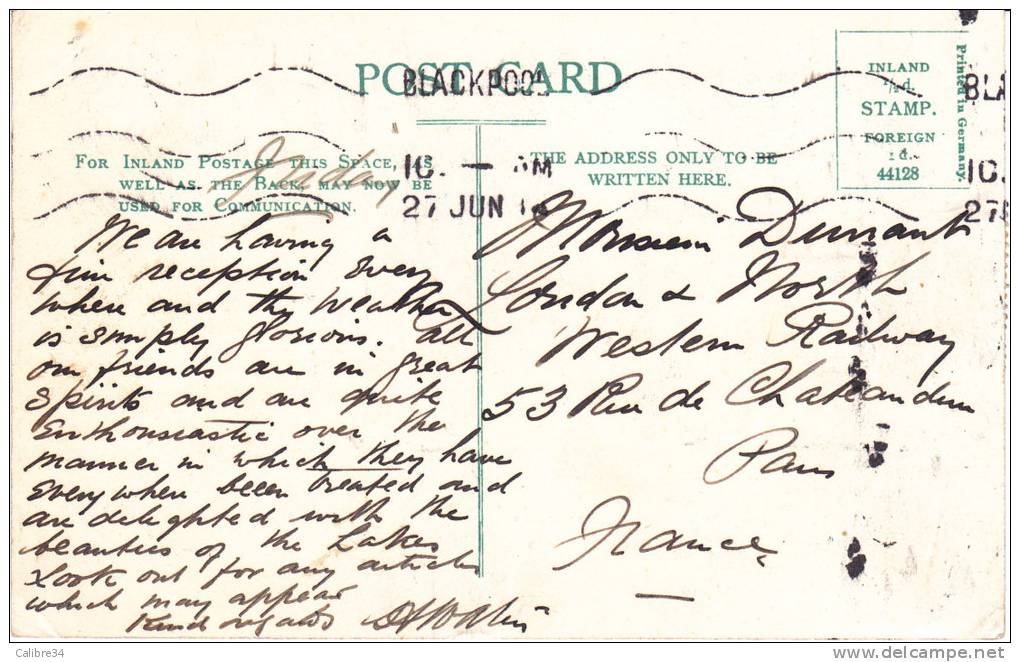 POST CARD
BLACKPOOL
10. — AM
27 JUN 14
INLAND
½d.
STAMP.
FOREIGN
1d.
44128
Printed in Germany.
BLA
10.
27
FOR INLAND POSTAGE THIS SPACE, AS
WELL AS THE BACK, MAY NOW BE
USED FOR COMMUNICATION.
THE ADDRESS ONLY TO BE
WRITTEN HERE.
Friday
We are having a
fine reception every
where and the weather
is simply glorious. All
our friends are in great
spirits and are quite
enthouseastic over the
manner in which they have
everywhere been treated and
are delighted with the
beauties of the Lakes
Look out for any articles
which may appear
Kind regards
Monsieur Durrant
London & North
Western Railway
53 Rue de Chateaudun
Paris
France
Calibre34
www.delcampe.net